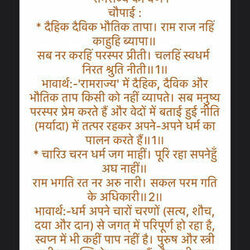 चौपाई :
* दैहिक दैविक भौतिक तापा। राम राज नहिं
काहुहि ब्यापा॥
सब नर करहिं परस्पर प्रीती। चलहिं स्वधर्म
निरत श्रुति नीती॥1॥
भावार्थ:-'रामराज्य' में दैहिक, दैविक और
भौतिक ताप किसी को नहीं व्यापते। सब मनुष्य
परस्पर प्रेम करते हैं और वेदों में बताई हुई नीति
(मर्यादा) में तत्पर रहकर अपने-अपने धर्म का
पालन करते हैं॥1॥
* चारिउ चरन धर्म जग माहीं। पूरि रहा सपनेहुँ
अघ नाहीं॥
राम भगति रत नर अरु नारी। सकल परम गति
के अधिकारी॥2॥
भावार्थ:-धर्म अपने चारों चरणों (सत्य, शौच,
दया और दान) से जगत् में परिपूर्ण हो रहा है,
स्वप्न में भी कहीं पाप नहीं है। पुरुष और स्त्री